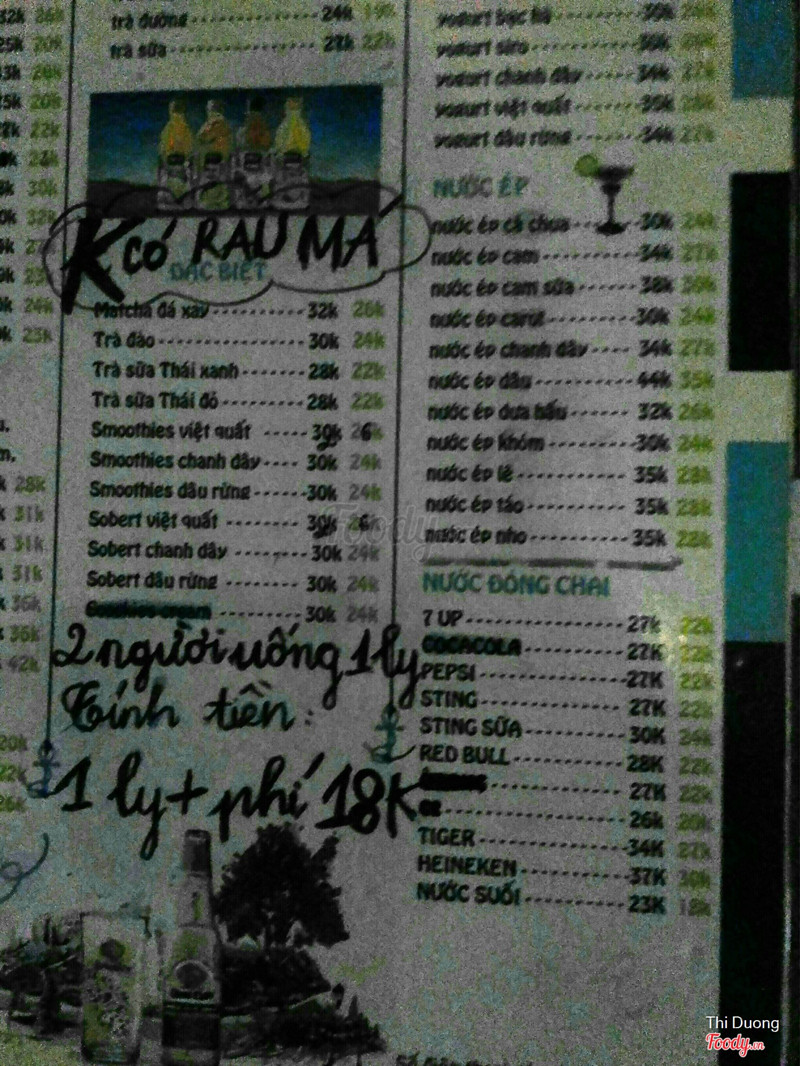 32k 26k
25k 20k
43k
25k 20k
27k 22k
23k
30k
32k
27k
23k
24k
23k
28k
31k
31k
31k
36k
36k
42k
20k
22k
26k
trà đường 24k 19k
trà sữa 27k 22k
K có RAU MÁ
ĐẶC BIỆT
Matcha đá xay 32k 26k
Trà đào 30k 24k
Trà sữa Thái xanh 28k 22k
Trà sữa Thái đỏ 28k 22k
Smoothies việt quất 30k 26
Smoothies chanh dây 30k 24k
Smoothies dâu rừng 30k 24k
Sobert việt quất 30k 26
Sobert chanh dây 30k 24k
Sobert dâu rừng 30k 24k
30k 24k
2 người uống 1 ly
Tính tiền:
1 ly + phí 18K
yogurt bạc hà 30k 24k
yogurt siro 30k
yogurt chanh dây 34k 27k
yogurt việt quất 35k 28k
yogurt dâu rừng 34k 27k
NƯỚC ÉP
nước ép cà chua 30k 24k
nước ép cam 34k 27k
nước ép cam sữa 38k 30k
nước ép carot 30k 24k
nước ép chanh dây 34k 27k
nước ép dâu 44k 35k
nước ép dưa hấu 32k 26k
nước ép khóm 30k 24k
nước ép lê 35k 28k
nước ép táo 35k 28k
nước ép nho 35k 28k
NƯỚC ĐÓNG CHAI
7 UP 27k 22k
COCACOLA 27K 22k
PEPSI 27K 22k
STING 27K 22k
STING SỮA 30K 24k
RED BULL 28K 22k
27K 22k
26k 20k
TIGER 34K 27k
HEINEKEN 37K 30k
NƯỚC SUỐI 23K 18k
Foody
Thi Duong
Foody.vn